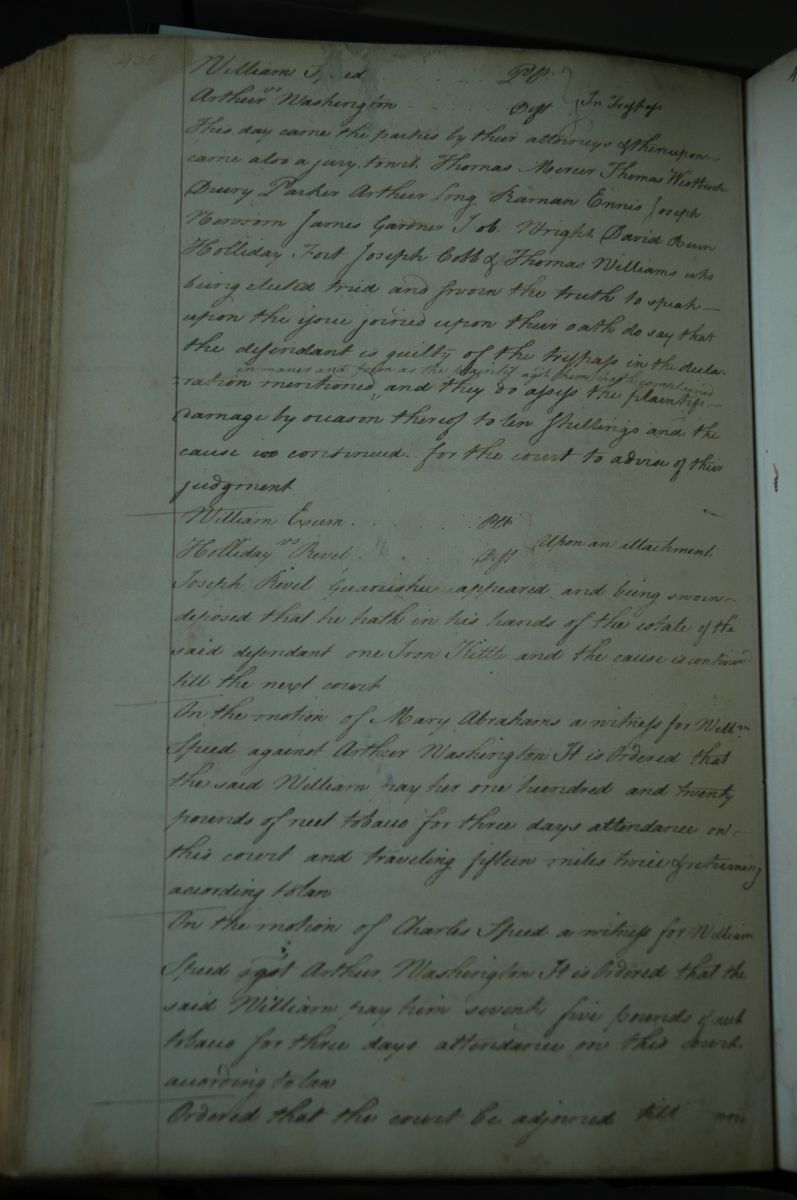 William Speed . . . . Plt.
vs } In Trespass
Arthur Washington . . . . Deft
This day came the parties by their attorneys & thereupon
came also a jury towit Thomas Mercer Thomas Westbrook
Drury Parker Arthur Long Kaman Ennis Joseph
Newsom James Gardner Job Wright David Ruin
Holliday Fort Joseph Cobb & Thomas Williams who
being elected tried and sworn the truth to speak
upon the issue joined upon their oath do say that
the defendant is guilty of the trespass in the decla-
in maner and form as the plaintif agst them hath complained
ration mentioned and they do assess the plaintifs
damage by reason thereof to ten shillings and the
cause is continued for the court to advise of their
judgment
William Exum . . . . Plt
vs } Upon an attachment
Holliday Revel . . . . Deft
Joseph Revel Guarishee appeared and being sworn
deposed that he hath in his hands of the estate of the
said defendant one Iron Kittle and the cause is continued
till the next court
On the motion of Mary Abrahams a witness for Willm
Speed against Arthur Washington It is Ordered that
the said William pay her one hundred and twenty
pounds of neet tobacco for three days attendance on
this court and traveling fifteen miles twice & returning
acording to law
On the motion of Charles Speed a witness for William
Speed agst Arthur Washington It is Ordered that the
said William pay him seventy five pounds of neet
tobacco for three days attendance on this court
according to law
Ordered that the court be adjorned till